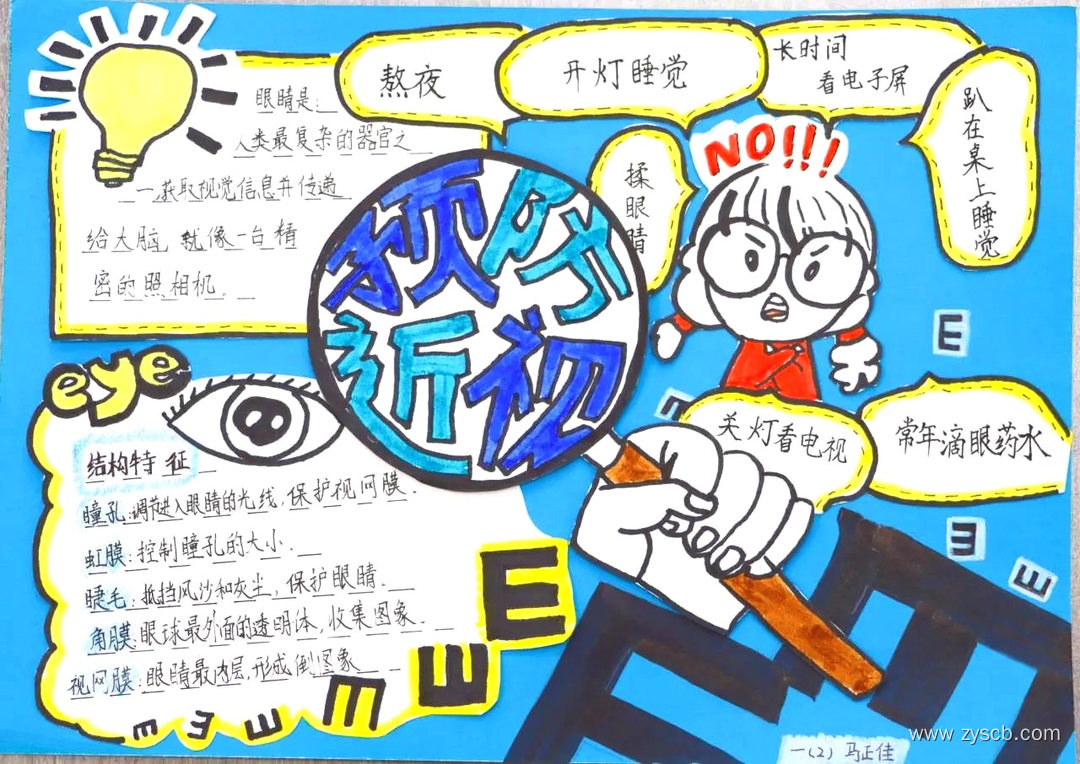 眼睛是:
人类最复杂的器官之
一.获取视觉信息并传递
给大脑,就像一台精
密的照相机.
熬夜
开灯睡觉
长时间
看电子屏
趴在桌上睡觉
揉眼睛
NO!!!
预防
近视
关灯看电视
常年滴眼药水
eye
结构特征
瞳孔:调节进入眼睛的光线,保护视网膜.
虹膜:控制瞳孔的大小.
睫毛:抵挡风沙和灰尘,保护眼睛.
角膜:眼球最外面的透明体,收集图象.
视网膜:眼睛最内层,形成倒图象
E
E
E
E
E
E
E
E
E
E
E
一(2) 马正佳
www.zyscb.com